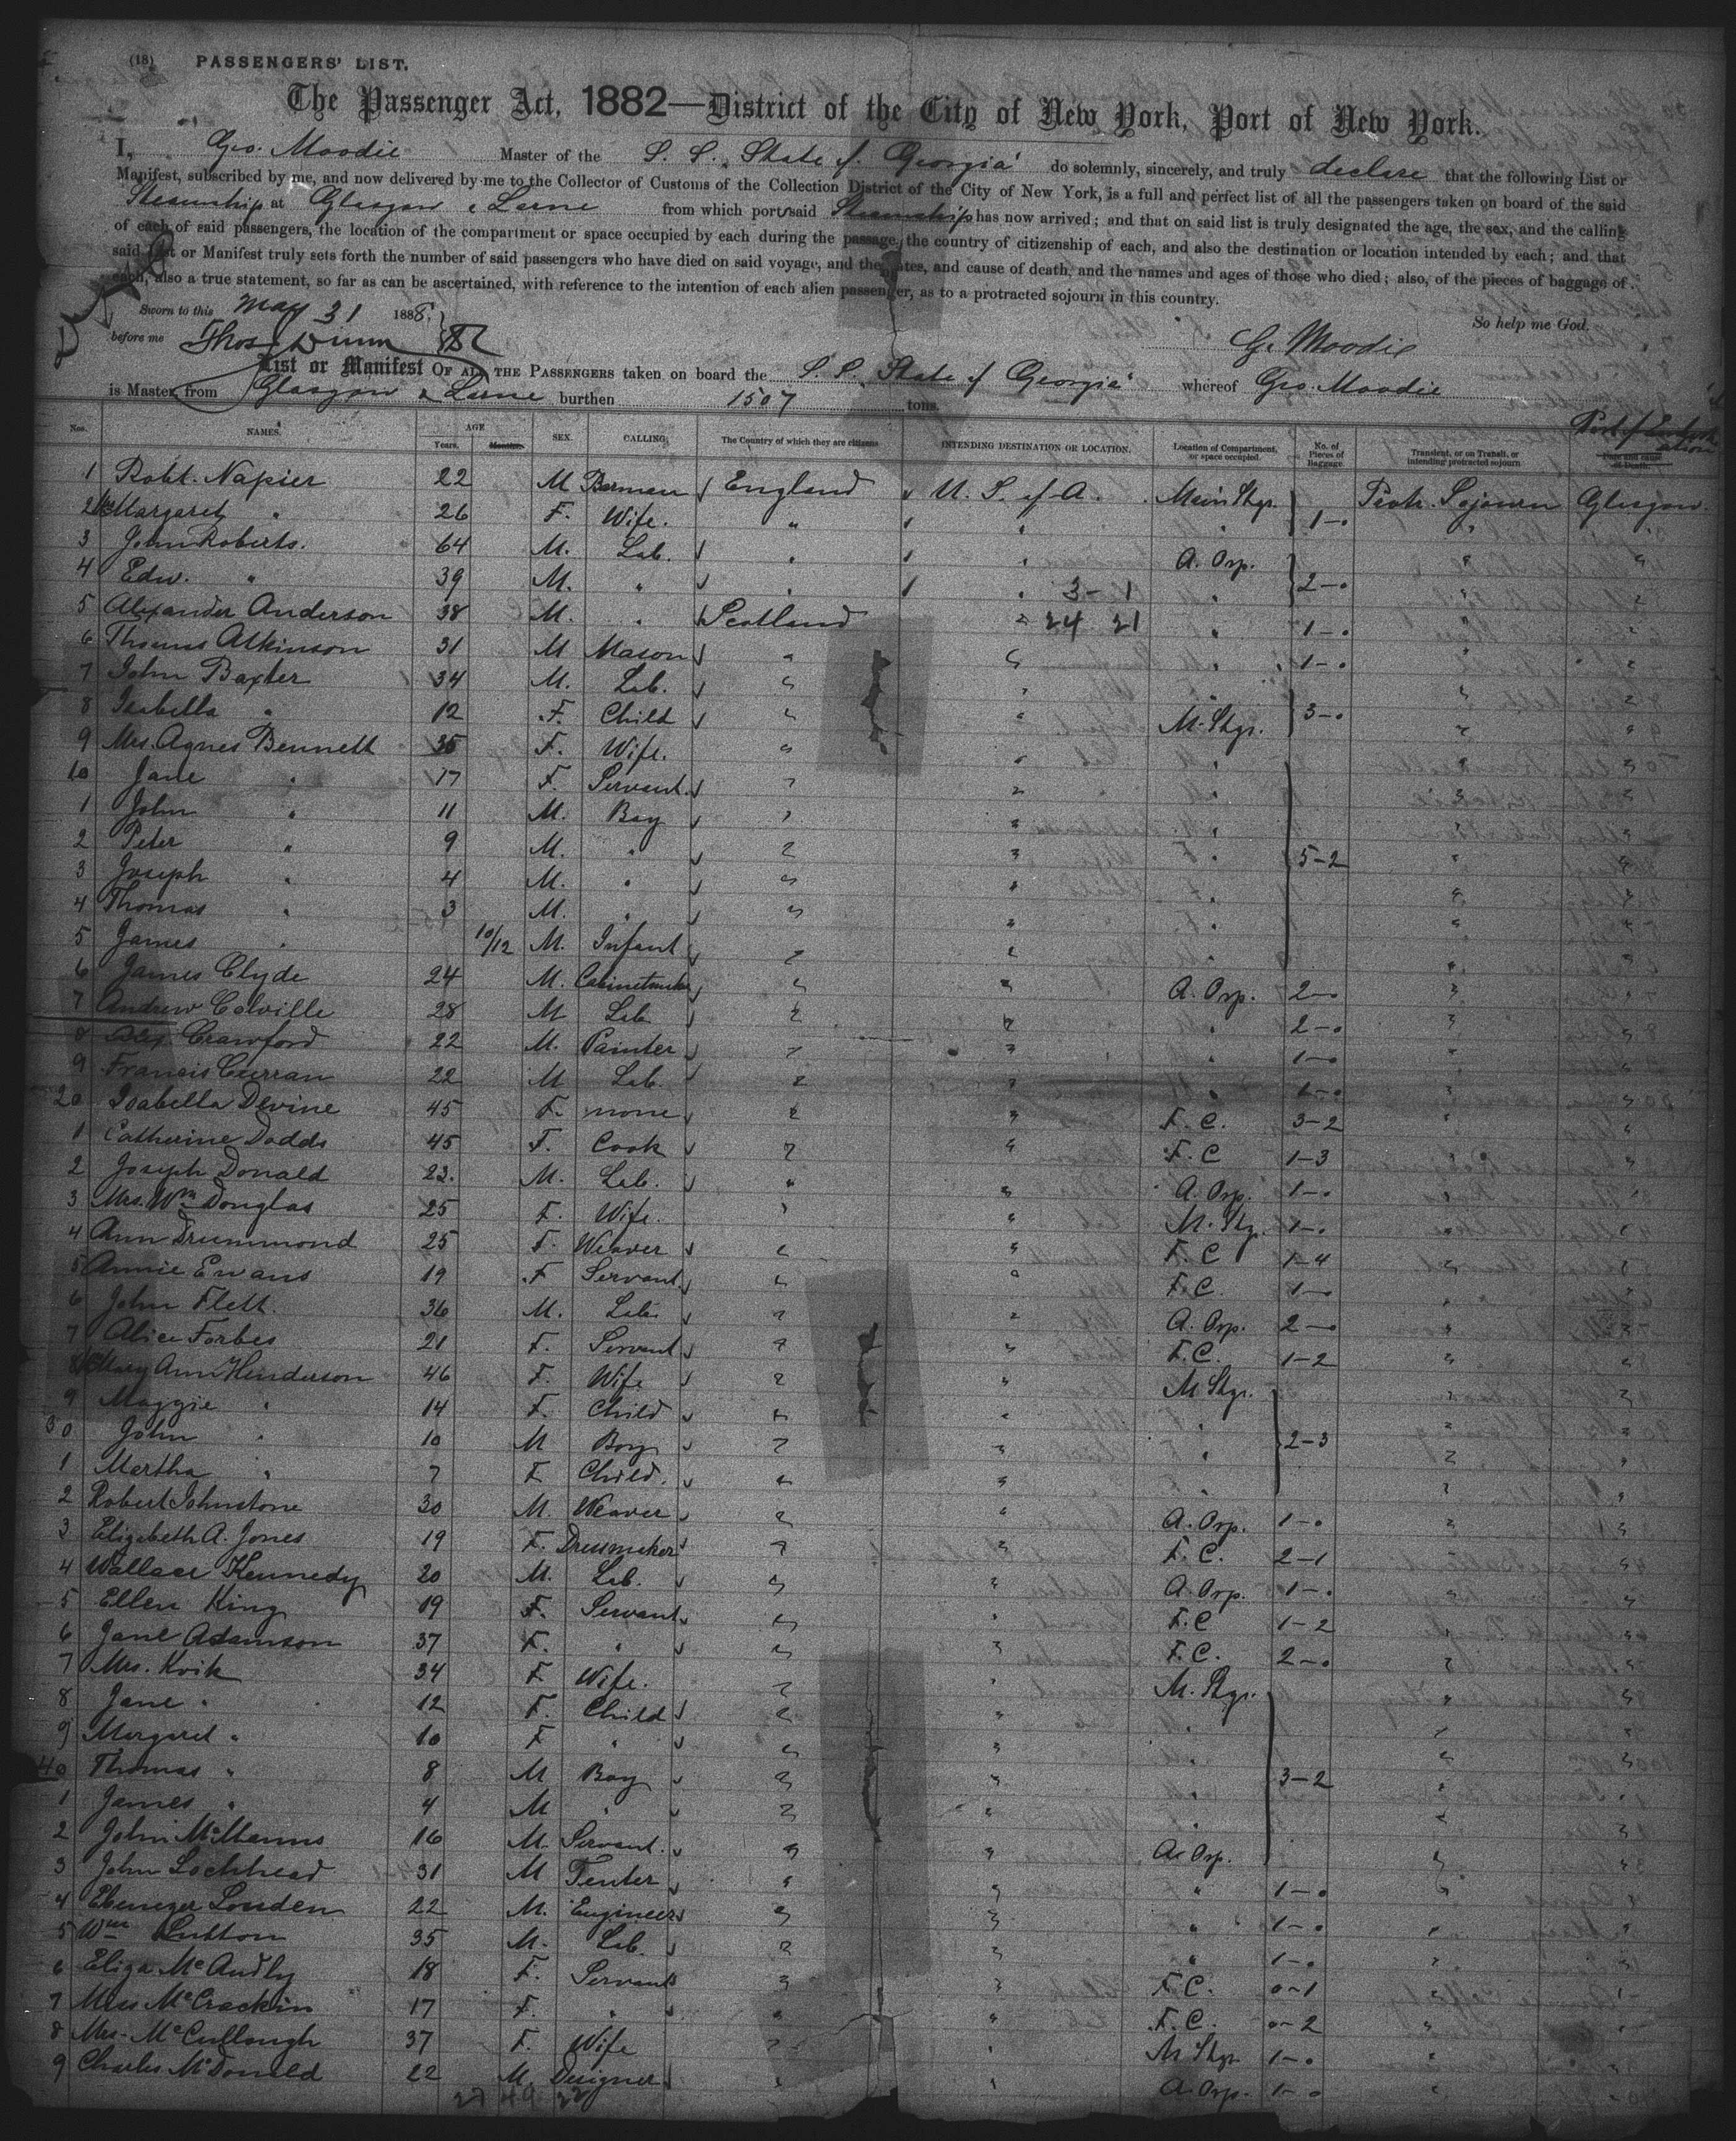 (18) PASSENGERS' LIST.
The Passenger Act, 1882—District of the City of New York, Port of New York.
I, Geo. Moodie Master of the S. S. "State of Georgia" do solemnly, sincerely, and truly declare that the following List or
Manifest, subscribed by me, and now delivered by me to the Collector of Customs of the Collection District of the City of New York, is a full and perfect list of all the passengers taken on board of the said
Steamship at Glasgow & Larne from which port said Steamship has now arrived; and that on said list is truly designated the age, the sex, and the calling
of each of said passengers, the location of the compartment or space occupied by each during the passage, the country of citizenship of each, and also the destination or location intended by each; and that
said List or Manifest truly sets forth the number of said passengers who have died on said voyage, and the dates, and cause of death, and the names and ages of those who died; also, of the pieces of baggage of
each, also a true statement, so far as can be ascertained, with reference to the intention of each alien passenger, as to a protracted sojourn in this country.
Sworn to this May 31 1888. So help me God,
before me Thos. Dunn G. Moodie
List or Manifest OF ALL THE PASSENGERS taken on board the S. S. "State of Georgia" whereof Geo. Moodie
is Master, from Glasgow & Larne burthen 1507 tons.
Nos. NAMES. AGE Years. Months. SEX. CALLING. The Country of which they are citizens INTENDING DESTINATION OR LOCATION. Location of Compartment, or space occupied. No. of Pieces of Baggage. Transient, or on Transit, or intending protracted sojourn Date and cause of Death. Port of
1 Robt. Napier 22 M England U. S. of A. Main Stge. Protr. Sojourn Glasgow
2 Margaret " 26 F. Wife. " " " 1-0 " "
3 John Roberts. 64 M. Lab. " " A. Orp. " "
4 Edw. " 39 M. " " " 3-1 " 2-0 " "
5 Alexander Anderson 38 M. " Scotland " 24 21 " 1-0 " "
6 Thomas Atkinson 31 M Mason " " " 1-0 " "
7 John Baxter 34 M. Lab. " " " " "
8 Isabella " 12 F. Child " " M. Stge. 3-0 " "
9 Mrs. Agnes Bennett 35 F. Wife. " " " " "
10 Jane " 17 F. Servant. " " " " "
1 John " 11 M. Boy " " " " "
2 Peter " 9 M. " " " " 5-2 " "
3 Joseph " 4 M. " " " " " "
4 Thomas " 3 M. " " " " " "
5 James " 10/12 M. Infant " " " " "
6 James Clyde 24 M. Cabinetmaker " " A. Orp. 2-0 " "
7 Andrew Colville 28 M Lab " " " 2-0 " "
8 Alex Crawford 22 M. Painter " " " 1-0 " "
9 Francis Curran 22 M Lab. " " " 1-0 " "
20 Isabella Devine 45 F. none " " F. C. 3-2 " "
1 Catherine Dodds 45 F. Cook " " F. C 1-3 " "
2 Joseph Donald 22. M. Lab. " " A. Orp. 1-0 " "
3 Mrs. Wm Douglas 25 F. Wife. " " M. Stge. 1-0 " "
4 Ann Drummond 25 F. Weaver " " F. C 1-4 " "
5 Annie Ewans 19 F Servant. " " F. C. 1-0 " "
6 John Flett. 36 M. Lab " " A. Orp. 2-0 " "
7 Alice Forbes 21 F. Servant " " F.C. 1-2 " "
8 Mary Ann Henderson 46 F. Wife " " M Stge. " "
9 Maggie " 14 F. Child " " " " "
30 John " 10 M Boy " " " 2-3 " "
1 Martha " 7 F Child. " " " " "
2 Robert Johnstone 30 M. Weaver " " A. Orp. 1-0 " "
3 Elizabeth A. Jones 19 F. Dressmaker " " F. C. 2-1 " "
4 Wallace Kennedy 20 M. Lab. " " A. Orp. 1-0 " "
5 Ellen King 19 F. Servant " " F.C 1-2 " "
6 Jane Adamson 37 F. " " " F.C. 2-0 " "
7 Mrs. 34 F Wife. " " M. Stge. " "
8 Jane " 12 F. Child " " " " "
9 Margaret " 10 F " " " " " "
40 Thomas " 8 M Boy " " " 3-2 " "
1 James " 4 M " " " " " "
2 John McManus 16 M. Servant. " " A. Orp. " "
3 John Lochhead 31 M Tenter " " " 1-0 " "
4 Ebenezer Louden 22 M. Engineer " " " 1-0 " "
5 Wm Lutton 35 M. Lab. " " " 1-0 " "
6 Eliza McAudly 18 F. Servant " " F. C. 0-1 " "
7 Miss McCrackin 17 F. " " " F. C. 0-2 " "
8 Mrs. McCullough 37 F. Wife " " M Stge 1-0 " "
9 Charles McDonald 22 M. Designer " " A. Orp. 1-0 " "
27 49 22